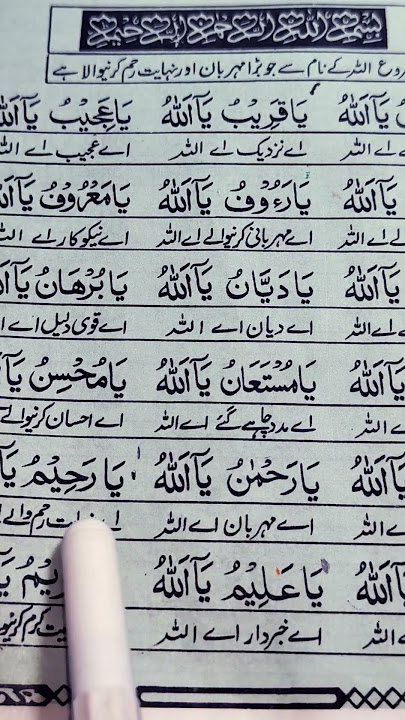 بسم الله الرحمن الرحيم
شروع اللہ کے نام سے جو بڑا مہربان اور نہایت رحم کرنیوالا ہے
يَآ اَللّٰهُ يَا قَرِيْبُ يَآ اَللّٰهُ يَا عَجِيْبُ يَآ اَللّٰهُ
اے اللہ اے نزدیک اے اللہ اے عجیب اے اللہ
يَآ اَللّٰهُ يَا رَءُوْفُ يَآ اَللّٰهُ يَا مَعْرُوْفُ يَآ
اے اللہ اے مہربانی کرنیوالے اے اللہ اے نیکوکار اے
يَآ اَللّٰهُ يَا دَيَّانُ يَآ اَللّٰهُ يَا بُرْهَانُ يَآ
اے اللہ اے دیان اے اللہ اے قوی دلیل اے
يَآ اَللّٰهُ يَا مُسْتَعَانُ يَآ اَللّٰهُ يَا مُحْسِنُ يَآ
اے اللہ اے مدد چاہے گئے اے اللہ اے احسان کرنیوالے
يَآ اَللّٰهُ يَا رَحْمٰنُ يَآ اَللّٰهُ يَا رَحِيْمُ يَآ
اے اللہ اے مہربان اے اللہ رحم والے
يَآ اَللّٰهُ يَا عَلِيْمُ يَآ اَللّٰهُ
اے اللہ اے خبردار اے اللہ کرم